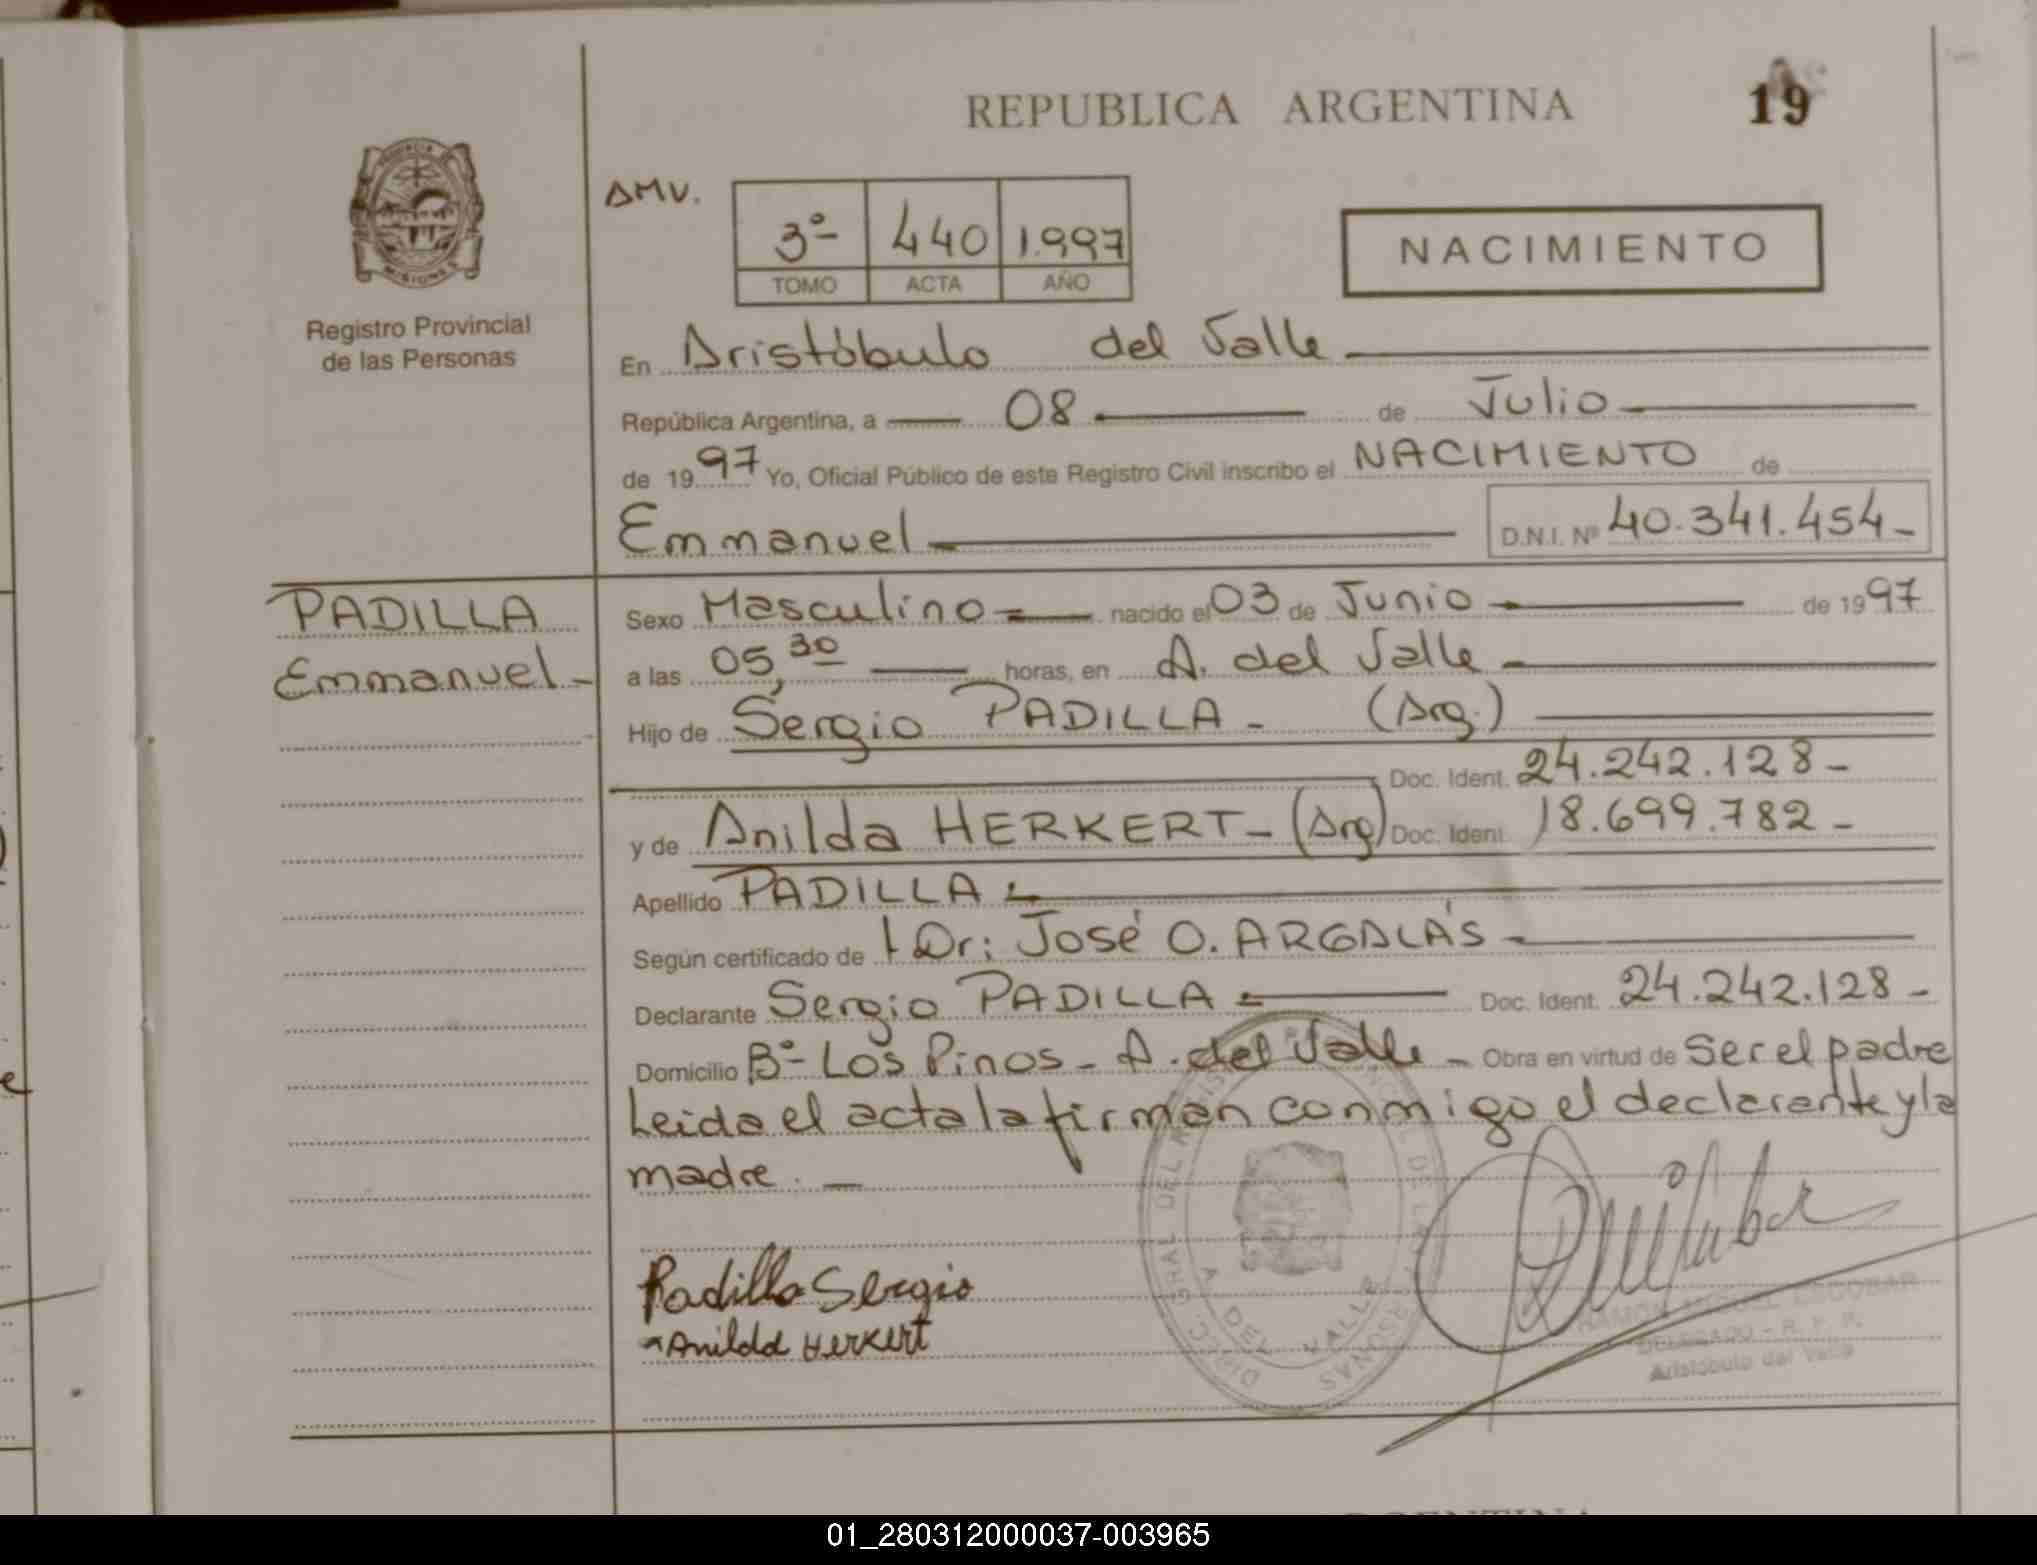 REPUBLICA ARGENTINA
19
PROVINCIA DE MISIONES
Registro Provincial
de las Personas
AMV.
3º 440 1.997
TOMO ACTA AÑO
NACIMIENTO
En Aristóbulo del Valle
República Argentina, a 08 de Julio
de 1997 Yo, Oficial Público de este Registro Civil inscribo el NACIMIENTO de
Emmanuel D.N.I. Nº 40.341.454-
PADILLA
Emmanuel-
Sexo Masculino nacido el 03 de Junio de 1997
a las 05,30 horas, en A. del Valle
Hijo de Sergio PADILLA- (Arg.)
Doc. Ident. 24.242.128-
y de Anilda HERKERT- (Arg) Doc. Ident. 18.699.782-
Apellido PADILLA
Según certificado de Dr: José O. ARGALÁS
Declarante Sergio PADILLA Doc. Ident. 24.242.128-
Domicilio Bº- Los Pinos- A. del Valle- Obra en virtud de Ser el padre
Leida el acta la firman conmigo el declarante y la
madre.-
Padilla Sergio
Anilda Herkert
DIRECC. GRAL DEL REGISTRO PROVINCIAL DE LAS PERSONAS
A DEL VALLE
RAMON MIGUEL ESCOBAR
DELEGADO - R. P. P.
Aristóbulo del Valle
01_280312000037-003965